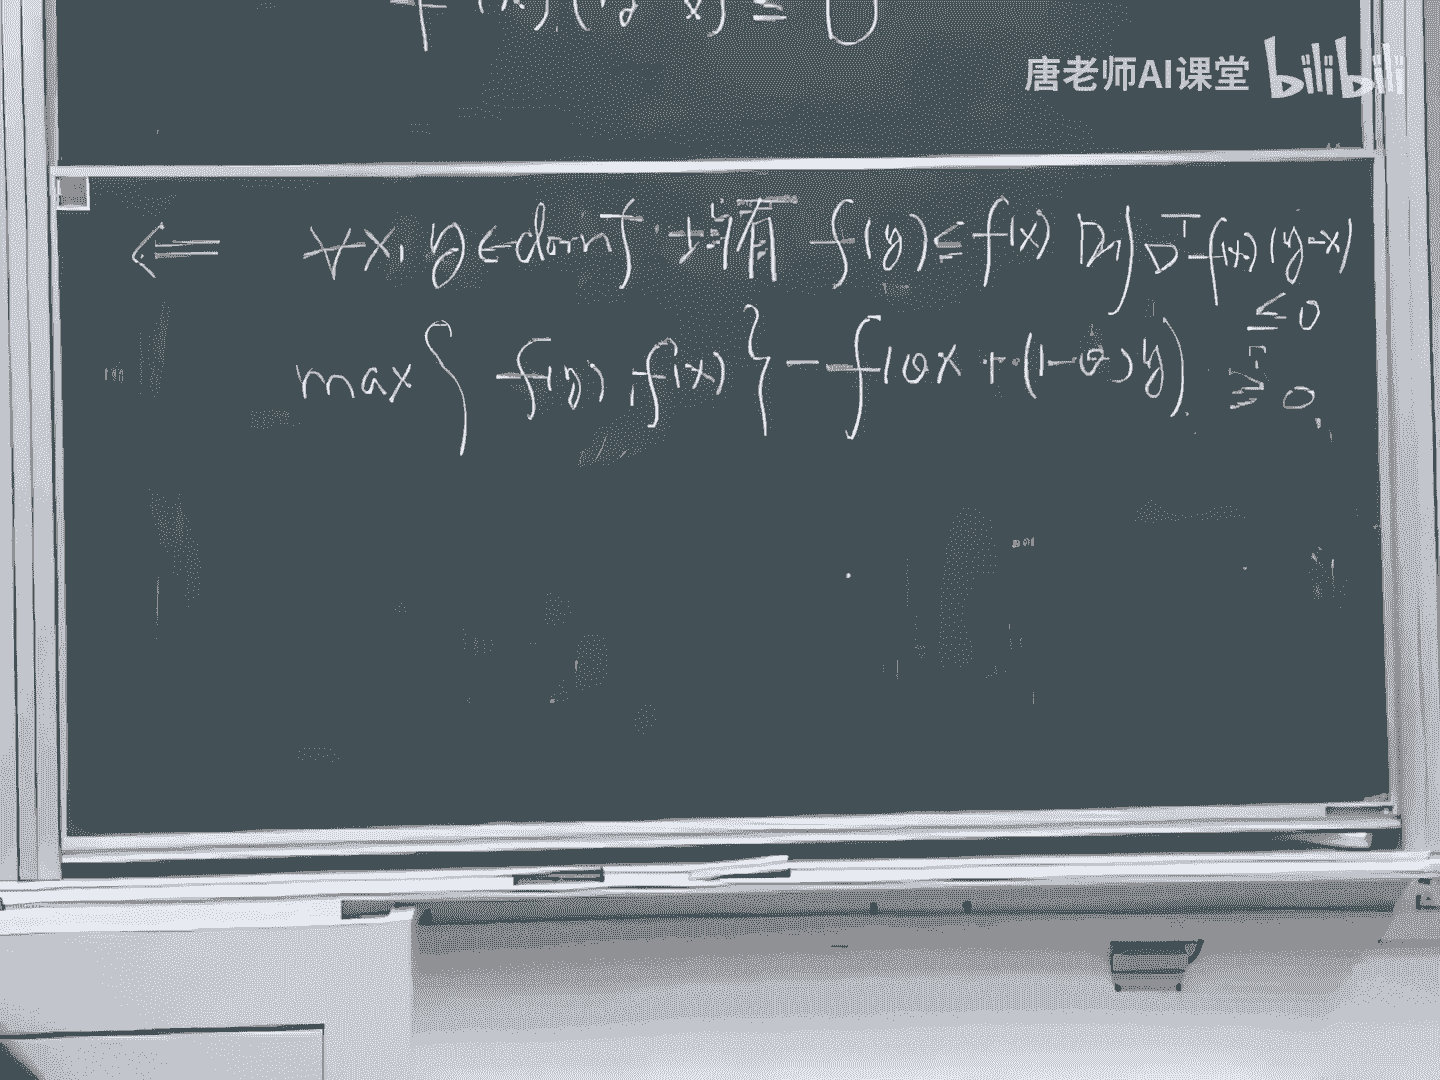 f(x)(y-x) ≤ 0
唐老师AI课堂 bilibili
⇐ ∀x, y ∈ dom f 均有 f(y) ≤ f(x) 则 ∇ᵀf(x)(y-x)
≤ 0
max { f(y), f(x) } - f(θx + (1-θ)y) ≥ 0